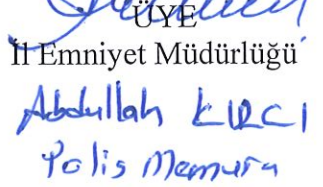 ÜYE
İl Emniyet Müdürlüğü
Abdullah KIRCI
Polis Memuru